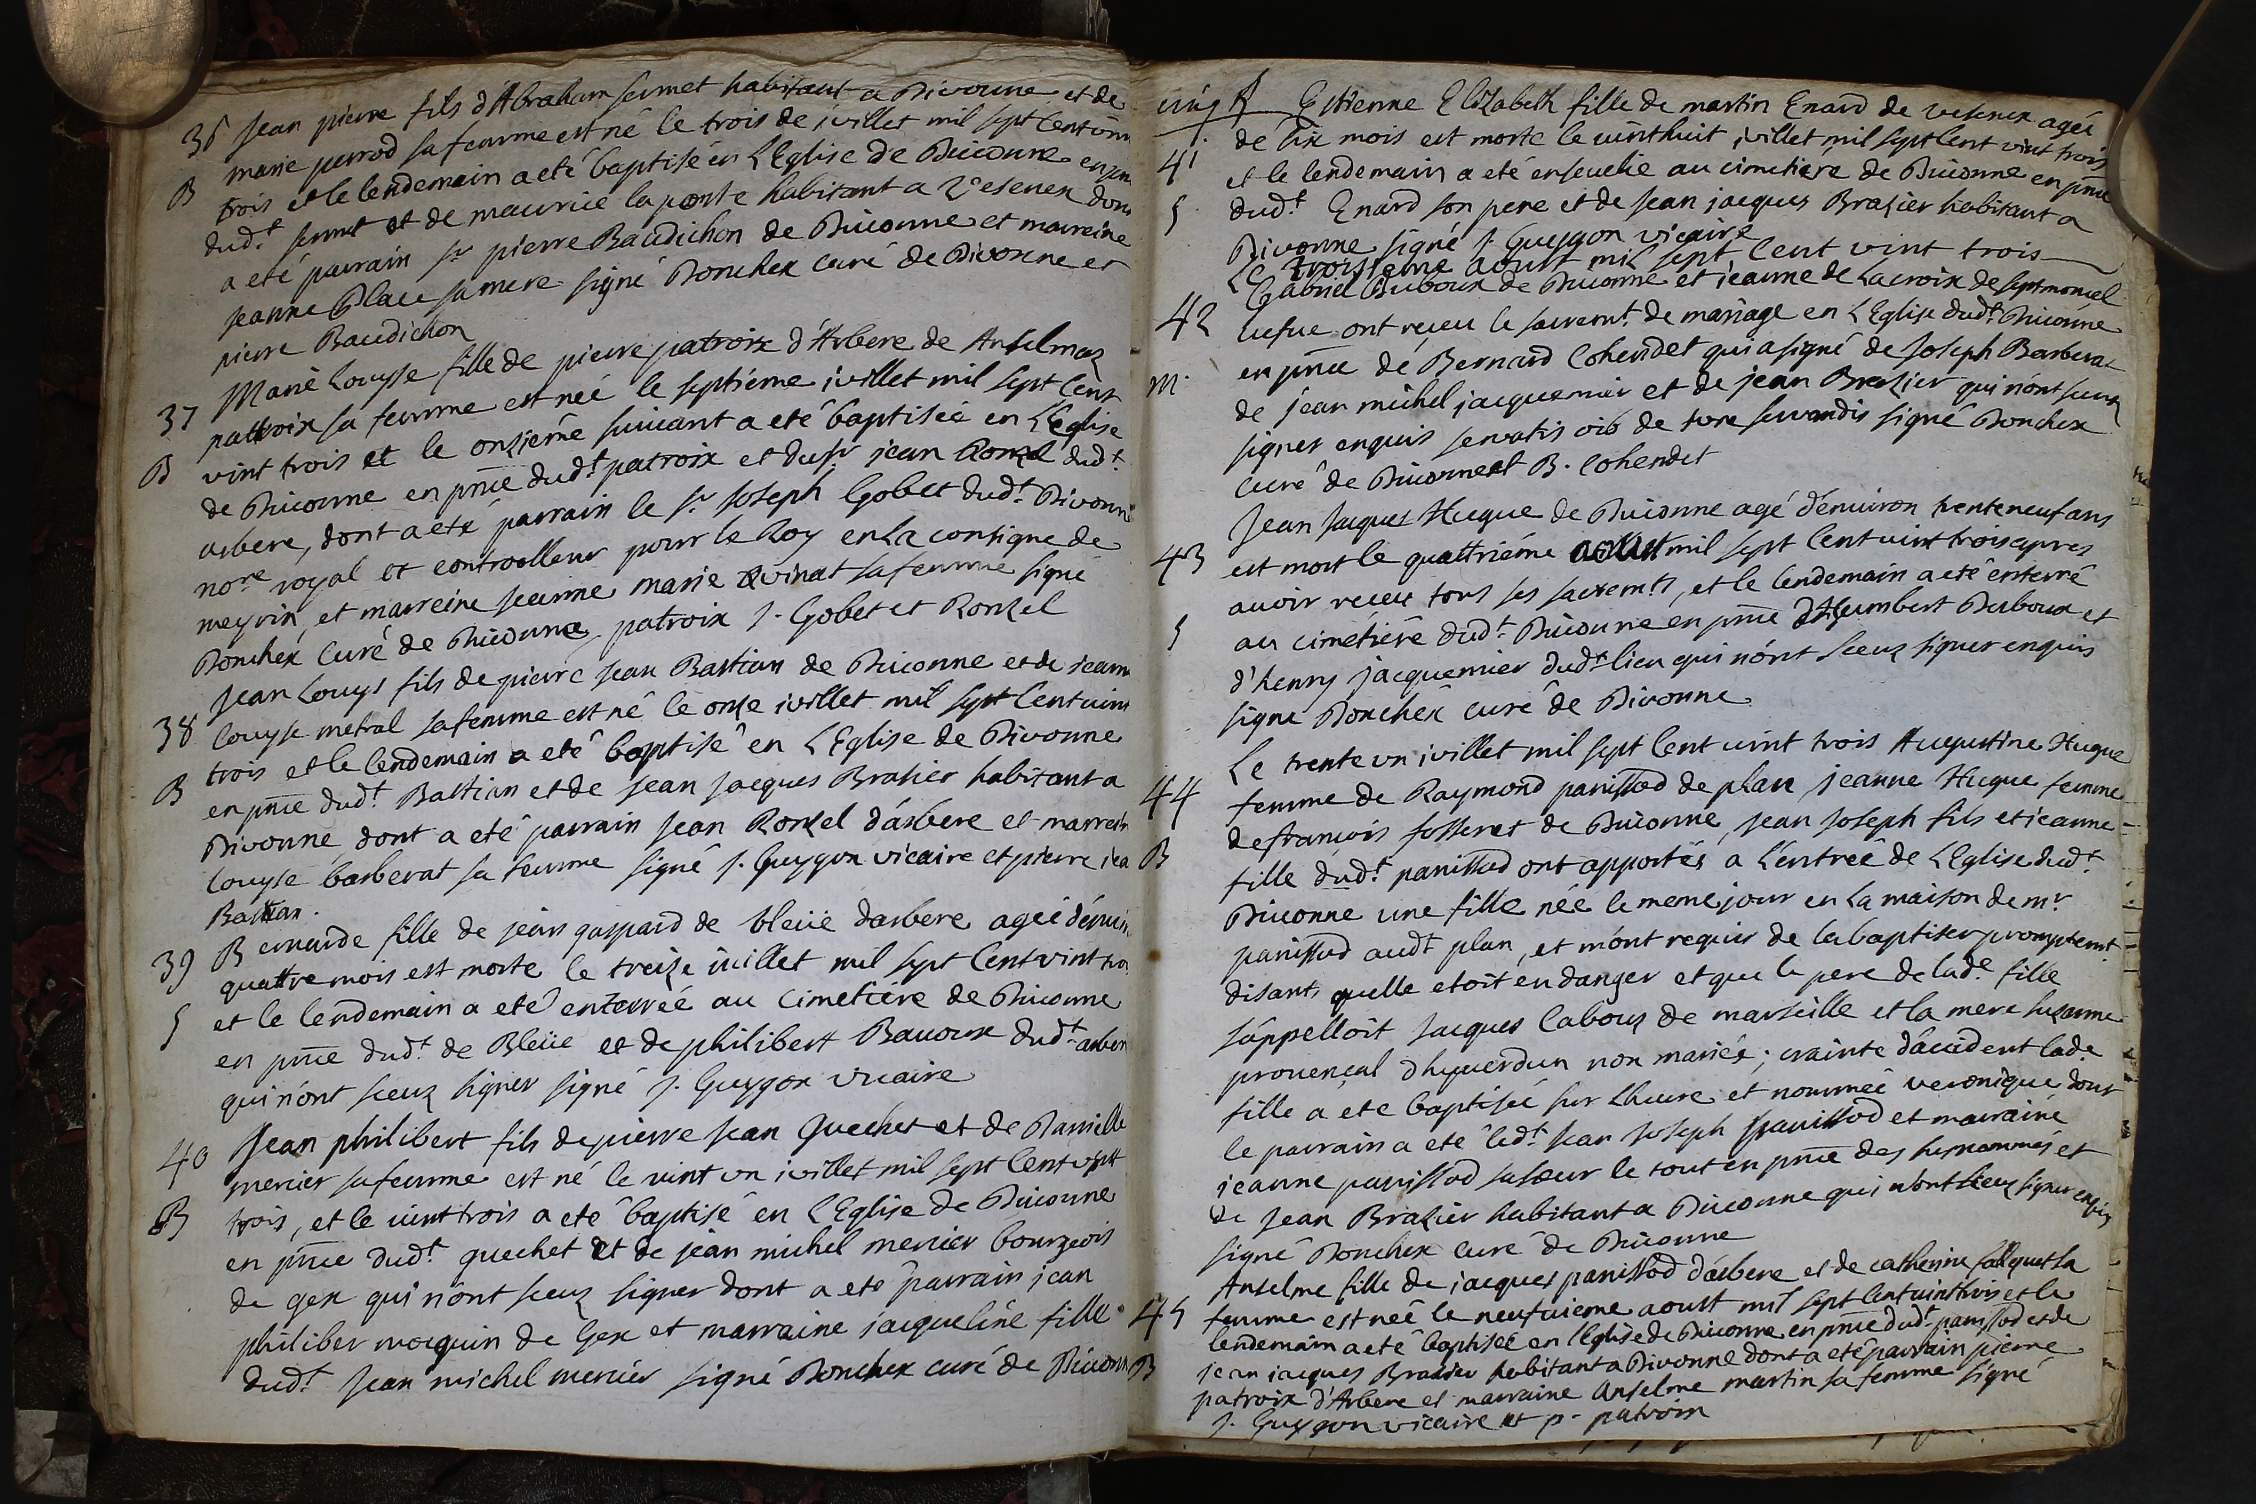 36 Jean pierre fils d'Abraham sermet habitant a Divonne et de
marie perrod sa femme est né le trois de juillet mil sept cent vint
B trois et le lendemain a eté baptisé en L'Eglise de Divonne en pnce
dudt. sermet et de maurice laporte habitant a Vesenex dont
a eté parrain sr pierre Baudichon de Divonne et marreine
jeanne Place sa mere signé Bonchex curé de Divonne et
pierre Baudichon
37 Marie Louyse fille de pierre patroix d'Arbere de Anselmaz
patroix sa femme est neé le septiéme juillet mil sept cent
B vint trois et le onziéme suivant a eté baptisée en L'Eglise
de Divonne en pnce dudt. patroix et du sr jean Ronzel dudt.
arbere, dont a eté parrain le sr. Joseph Gobet dudt. Divonne
nore royal et controolleur pour le Roy en la consigne de
meyrin, et marreine jeanne marie quinat sa femme signé
Bonchex curé de Divonne, patroix J. Gobet et Ronzel
38 Jean Louys fils de pierre jean Bastian de Divonne et de jeanne
louyse metral sa femme est né le onze juillet mil sept cent vint
trois et le lendemain a eté baptisé en L'Eglise de Divonne
B en pnce dudt. Bastian et de jean jacques Brasier habitant a
Divonne dont a eté parrain jean Ronzel d'arbere et marreine
louyse barberat sa femme signé J. Guygon vicaire et pierre jea
Bastian.
39 Bernarde fille de jean gaspard de bleüe d'arbere ageé d'envin
quattre mois est morte le treize juillet mil sept cent vint trois
S et le lendemain a eté enterreé au cimetiére de Divonne
en pnce dudt. de Bleüe et de philibert Bavoux dudt. arbere
qui n'ont sceuz signer signé J. Guygon vicaire
40 Jean philibert fils de pierre jean Quechet et de Danielle
mercier sa femme est né le vint un juillet mil sept cent vint
B trois, et le vint trois a eté baptisé en L'Eglise de Divonne
en pnce dudt. quechet et de jean michel mercier bourgeois
de gex qui n'ont sceuz signer dont a eté parrain jean
philiber moquin de Gex et marraine jacqueline fille
dudt. jean michel mercier signé Bonchex curé de Divonne
Estienne Elizabeth fille de martin Enard de vesenex ageé
41 de six mois est morte le vinthuit juillet mil sept cent vint trois
et le lendemain a eté ensevelie au cimetiére de Divonne en pnce
S dudt. Enard son pere et de jean jacques Brasier habitant a
Divonne signé J. Guygon vicaire
Le troisieme aoust mil sept cent vint trois
42 Gabriel Duboux de Divonne et jeanne de Lacroix de septmoncel
vefve ont reçeu le sacremt. de mariage en L'Eglise dudt. Divonne
M. en pnce de Bernard Cohendet qui a signé de Joseph Barberat
de jean michel jacquemier et de jean Brasier qui n'ont sceuz
signer enquis servatis oib de iure servandis signé Bonchex
curé de Divonne et B. Cohendet
Jean Jacques Hugue de Divonne agé d'environ trenteneuf ans
43 est mort le quattriéme aoust mil sept cent vint trois apres
avoir reçeu tous ses sacremts, et le lendemain a eté enterré
S au cimetiére dudt. Divonne en pnce d'Humbert Duboux et
d'henry jacquemier dudt. lieu qui n'ont sceuz signer enquis
signé Bonchex curé de Divonne
Le trente un juillet mil sept cent vint trois Augustine Hugue
44 femme de Raymond panissod de plan, jeanne Hugue femme
de françois fosseret de Divonne, jean joseph fils et jeanne
B fille dudt. panissod ont apportés a L'entreé de L'Eglise dudt.
Divonne une fille née le meme jour en la maison de mr
panissod audt plan, et m'ont requis de la baptiser promptemt.
disants quelle etoit en danger et que le pere de lade. fille
s'appelloit jacques labouz de marseille et la mere suzanne
provençal d'hyverdun non marieé; crainte d'accident lade
fille a eté baptiseé sur L'heure et nommeé veronique dont
le parrain a eté ledt. jean joseph panissod et marraine
jeanne panissod sa sœur le tout en pnce des susnommés et
de jean Brasier habitant a Divonne qui n'ont sceuz signer enquis
signé Bonchex curé de Divonne
Anselme fille de jacques panissod d'arbere et de catherine falquet sa
45 femme est neé le neufvieme aoust mil sept cent vint trois et le
lendemain a eté baptiseé en l'Eglise de Divonne en pnce dudt. panissod et de
B jean jacques Brasier habitant a Divonne dont a eté parrain pierre
patroix d'Arbere et marraine Anselme martin sa femme signé
J. Guygon vicaire et p. patroix